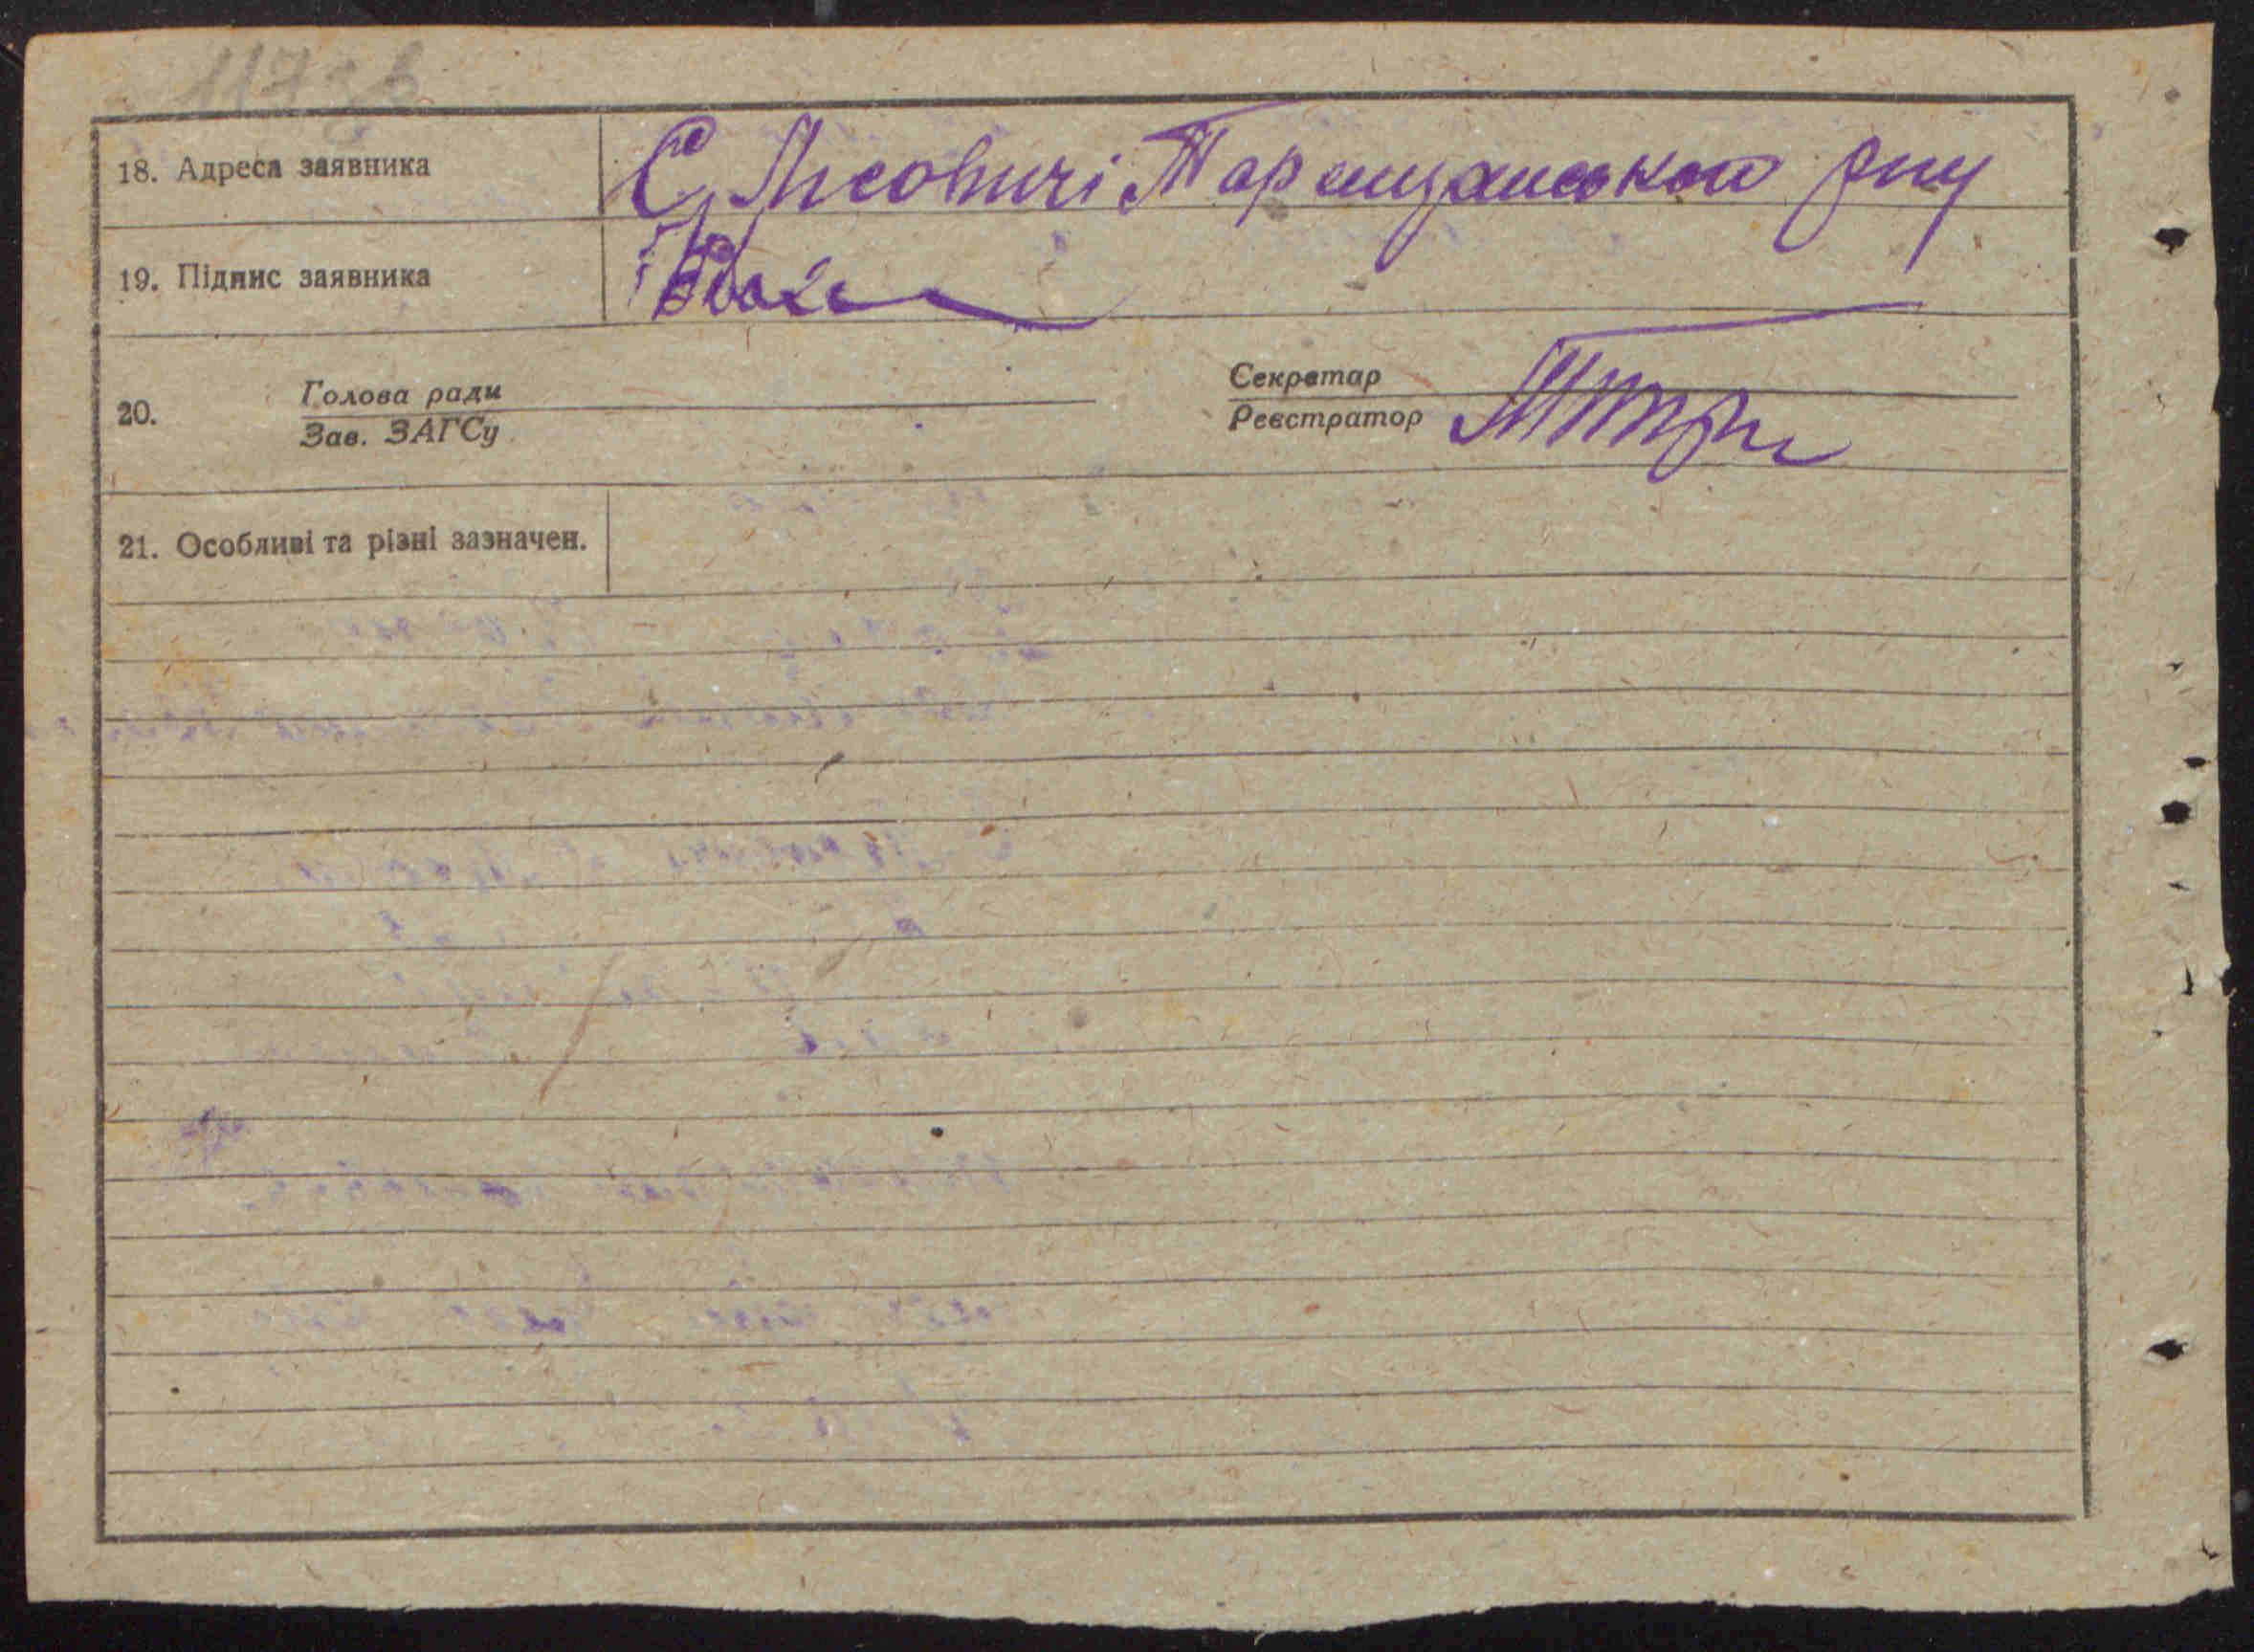 117зв
18. Адреса заявника С. Лісовичі Таращанського рну
19. Підпис заявника
20. Голова ради Секретар
Зав. ЗАГСу Реєстратор
21. Особливі та різні зазначен.